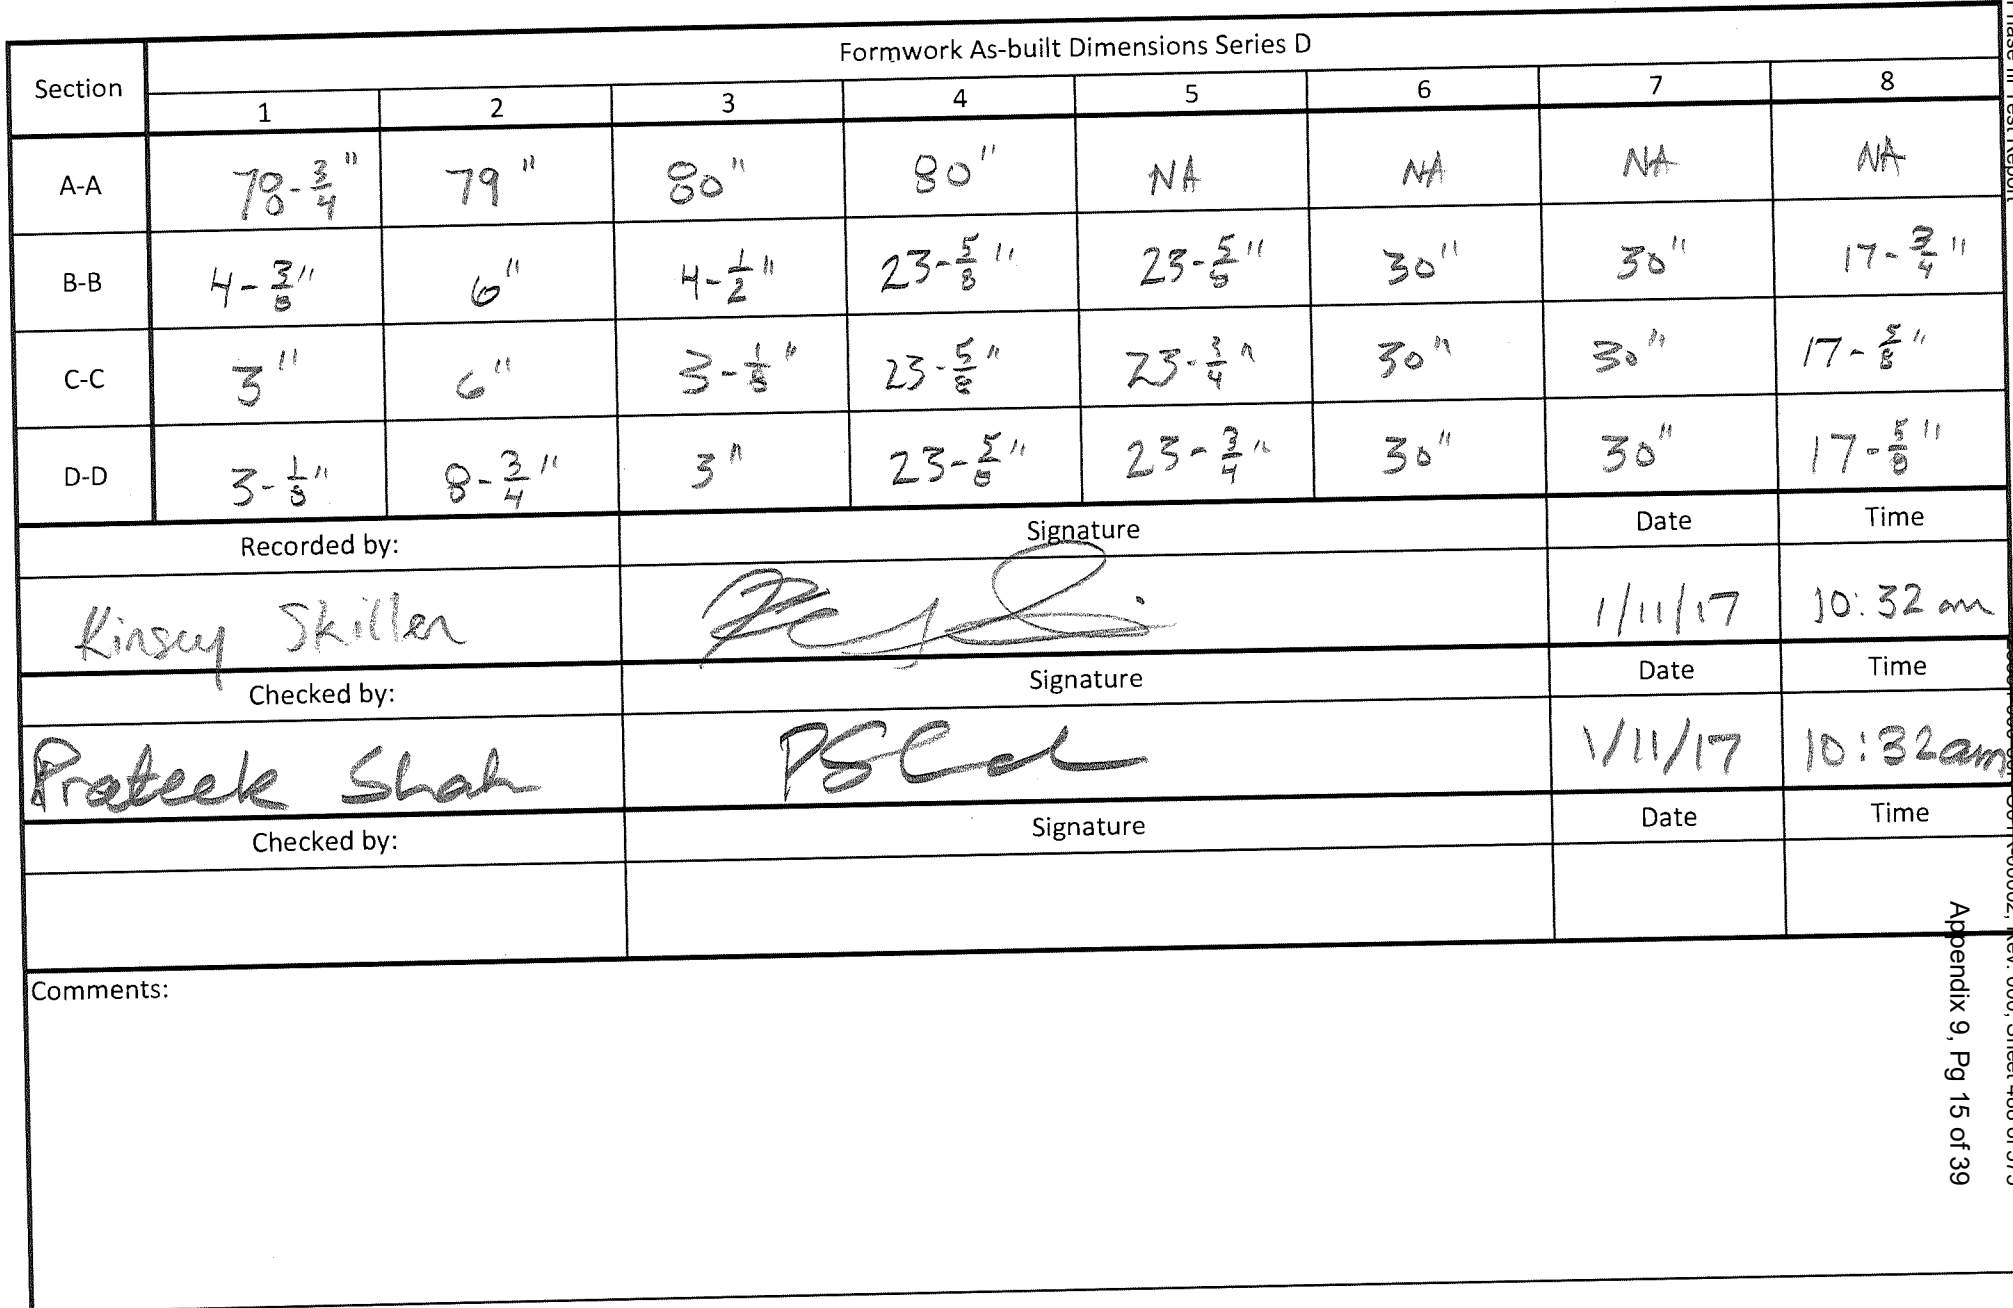 Formwork As-built Dimensions Series D
Section 1 2 3 4 5 6 7 8
A-A 78-3/4" 79" 80" 80" NA NA NA NA
B-B 4-3/8" 6" 4-1/2" 23-5/8" 23-5/8" 30" 30" 17-3/4"
C-C 3" 6" 3-1/8" 23-5/8" 23-3/4" 30" 30" 17-5/8"
D-D 3-1/8" 8-3/4" 3" 23-5/8" 23-3/4" 30" 30" 17-5/8"
Recorded by: Signature Date Time
Kinsey Skillen 1/11/17 10:32 am
Checked by: Signature Date Time
Prateek Shah PShah 1/11/17 10:32am
Checked by: Signature Date Time
Comments:
Test Report
Appendix 9, Pg 15 of 39